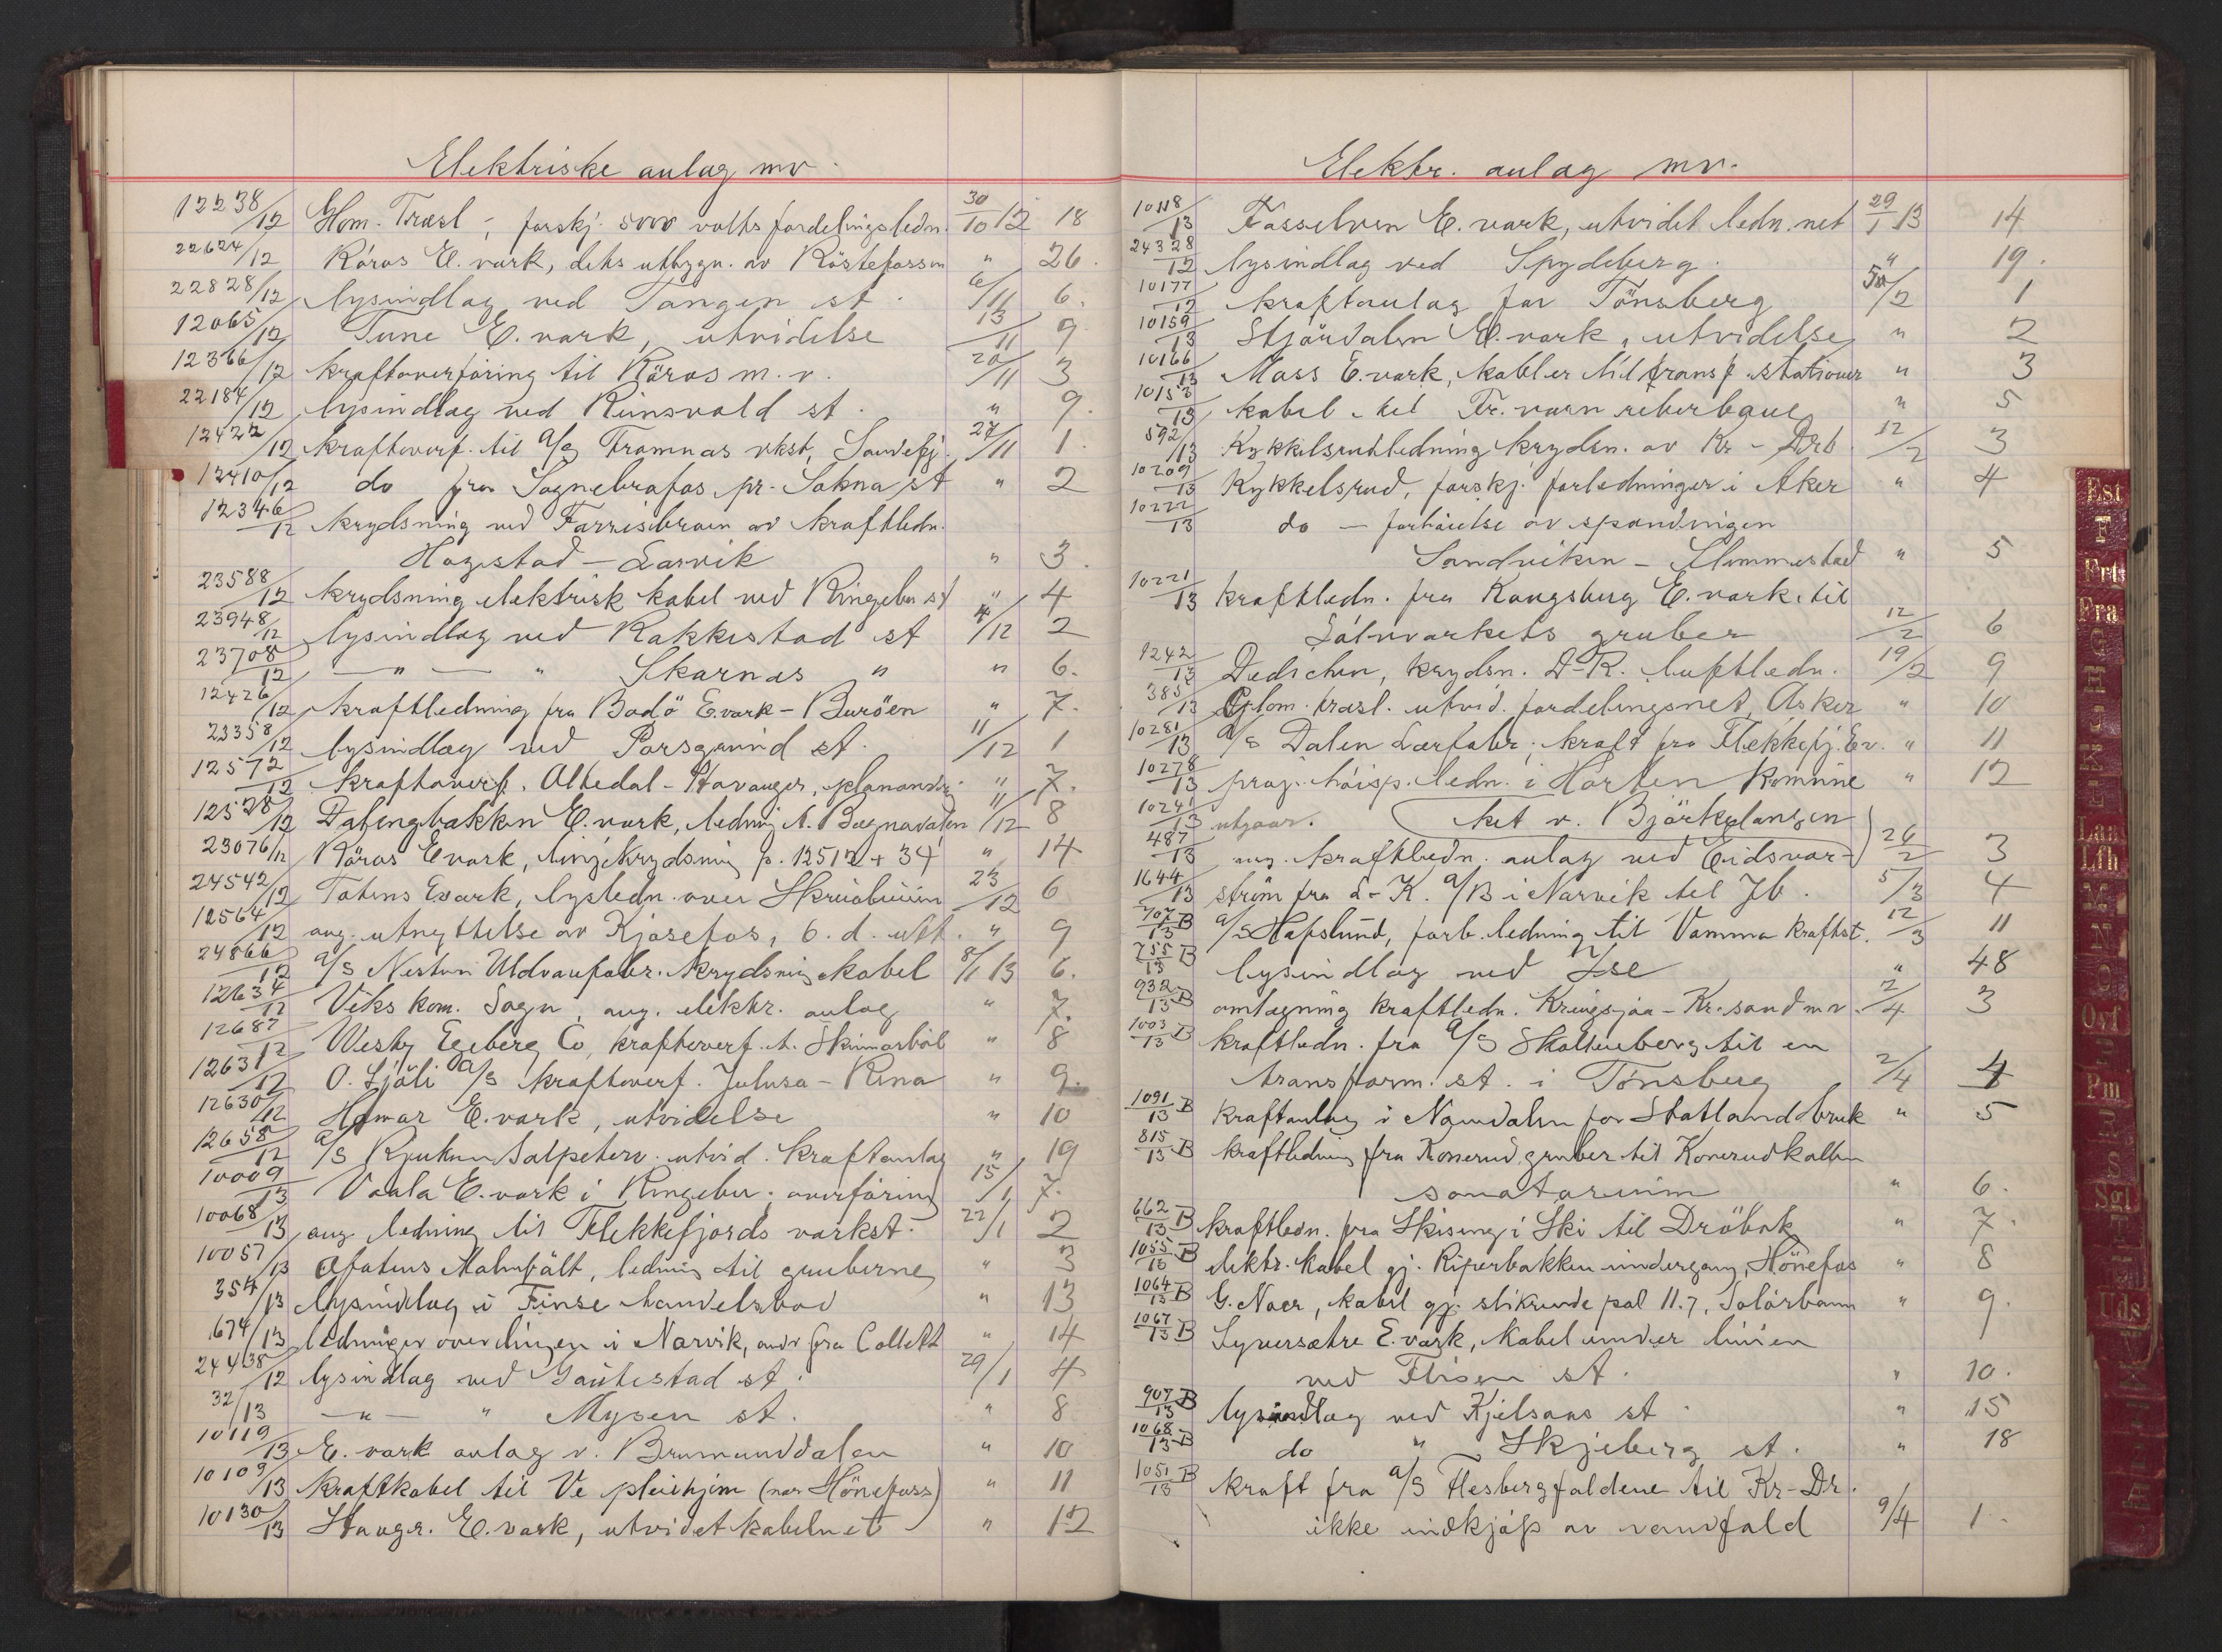 Elektriske anlæg mv.
12238/12 Hom. Træsl; forskj. 5000 volts fordelingsledn. 30/10 12 18
22624/12 Röros E. verk, dets utbygn. av Röstefossen " 26.
22828/12 lysindlæg ved Tangen st. 6/11 6.
12065/12 Tune E. verk, utvidelse 13/11 9
12366/12 kraftoverföring til Röros m. v. 20/11 3
22184/12 lysindlæg ved Rinsvold st. " 9.
12422/12 kraftoverf. til A/S Framnæs vkst, Sandefj. 27/11 1.
12410/12 do fra Sagnebrafos pr. Sokna st " 2
12346/12 krydsning ved Farrisbroen av kraftledn.
Hogstad - Larvik " 3.
23588/12 krydsning elektrisk kabel ved Ringebu st " 4
23948/12 lysindlæg ved Rakkestad st 4/12 2
23708/12 — " — " Skarnes " " 6.
12426/12 kraftledning fra Bodö E.verk - Buröen " 7.
23358/12 lysindlæg ved Porsgrund st. 11/12 1
12572/12 kraftoverf. Oltedal - Stavanger, planændr. " 7.
12528/12 Dalengbakken E. verk, ledning t. Bægnadalen 11/12 8
23076/12 Röros E verk, linjekrydsning p. 12512 + 34 " 14
24542/12 Totens Everk, lysledn. over Skreiabanen 23/12 6
12564/12 ang. utnyttelse av Kjosefos, 6. d. utf. " 9
24866/12 A/S Nesttun Uldvarefabr. krydsning kabel 8/1 13 6.
12634/12 Viks kom. Sogn, ang. elektr. anlæg " 7.
12687/12 Westy Egeberg Co, kraftoverf. t. Skinnarböl " 8
12631/12 O. Sjöli A/S kraftoverf. Julusa - Rena " 9.
12630/12 Hamar E. verk, utvidelse " 10
12658/12 A/S Rjukan Salpeterv. utvid. kraftanlæg " 19
10009/13 Vaala E. verk i Ringebu, overföring 15/1 7.
10068/13 ang ledning til Flekkefjords verkst. 22/1 2
10057/13 Ofotens Malmfält, ledning til gruberne " 3
354/13 lysindlæg i Finse handelsbod " 13
674/13 ledninger over linjen i Narvik, andr fra Collett " 14
24438/12 lysindlæg ved Gautestad st. 29/1 4
32/13 — " — " Mysen st. " 8
10119/13 E. verk anlæg v. Brumunddalen " 10
10109/13 kraftkabel til Ve pleiehjem (nær Hönefoss) " 11
10130/13 Stavgr. E. verk, utvidet kabelnet " 12
Elektr. anlæg mv.
10118/13 Fosselven E. verk, utvidet ledn. net 29/1 13 14
24328/12 lysindlæg ved Spydeberg. " 19.
10177/12 kraftanlæg for Tönsberg 5/2 1
10159/13 Stjördalen E. verk, utvidelse " 2
10166/13 Moss E. verk, kabler til transf. stationer " 3
10153/13 kabel til Fr. værn reberbane " 5
592/13 Kykkelsrudledning krydsn. av Kr - Drb. 12/2 3
10209/13 Kykkelsrud, forskj. forledninger i Aker " 4
10222/13 do — forhöielse av spændingen
Sandviken - Slemmestad " 5
10221/13 kraftledn. fra Kongsberg E. verk til
Sölvverkets gruber 12/2 6
1242/13 Dedichen, krydsn. D-R. luftledn. 19/2 9
385/13 Glom. træsl. utvid. fordelingsnet, Asker " 10
10281/13 A/S Dalen Lærfabr; kraft fra Flekkefj. Ev. " 11
10278/13 proj. höisp. ledn. i Horten Kommune " 12
10241/13 utgaar. ket v. Björkelangen
487/13 ang. kraftledn. anlæg ved Eidsvoll 26/2 3
1644/13 ström fra L-K. A/B i Narvik til Jb. 5/3 4
707/13 B A/S Hafslund, forb. ledning til Vamma kraftst. 12/3 11
755/13 B lysindlæg ved Ise " 48
932/13 B omlægning kraftledn. Kringsjaa - Kr.sand mv. 2/4 3
1003/13 B kraftledn. fra A/S Skollenborg til en
transform. st. i Tönsberg 2/4 4
1091/13 B kraftanlæg i Namdalen for Statlandbruk " 5
815/13 B kraftledning fra Konnerud gruber til Konerudkollen
sanatorium " 6.
662/13 B kraftledn. fra Skiseng i Ski til Dröbak " 7.
1055/13 B elektr. kabel gj. Riperbakken undergang, Hönefos " 8
1064/13 B G. Naer, kabel gj. stikrende pæl 11.7, Solörbanen " 9.
1067/13 B Syversætre E. verk, kabel under linien
ved Flisen st. " 10.
907/13 B lysindlæg ved Kjelsaas st. " 15
1068/13 B do " Skjeberg st. " 18
1051/13 B kraft fra A/S Flesbergfaldene til Kr-Dr.
ikke indkjöp av vandfald 9/4 1.
Est
F
Frt
Fra
G
H
J
K
L
Laa
Lfh
M
N
O
Ovf
P
Pm
R
S
Sgl
T
U
Uds